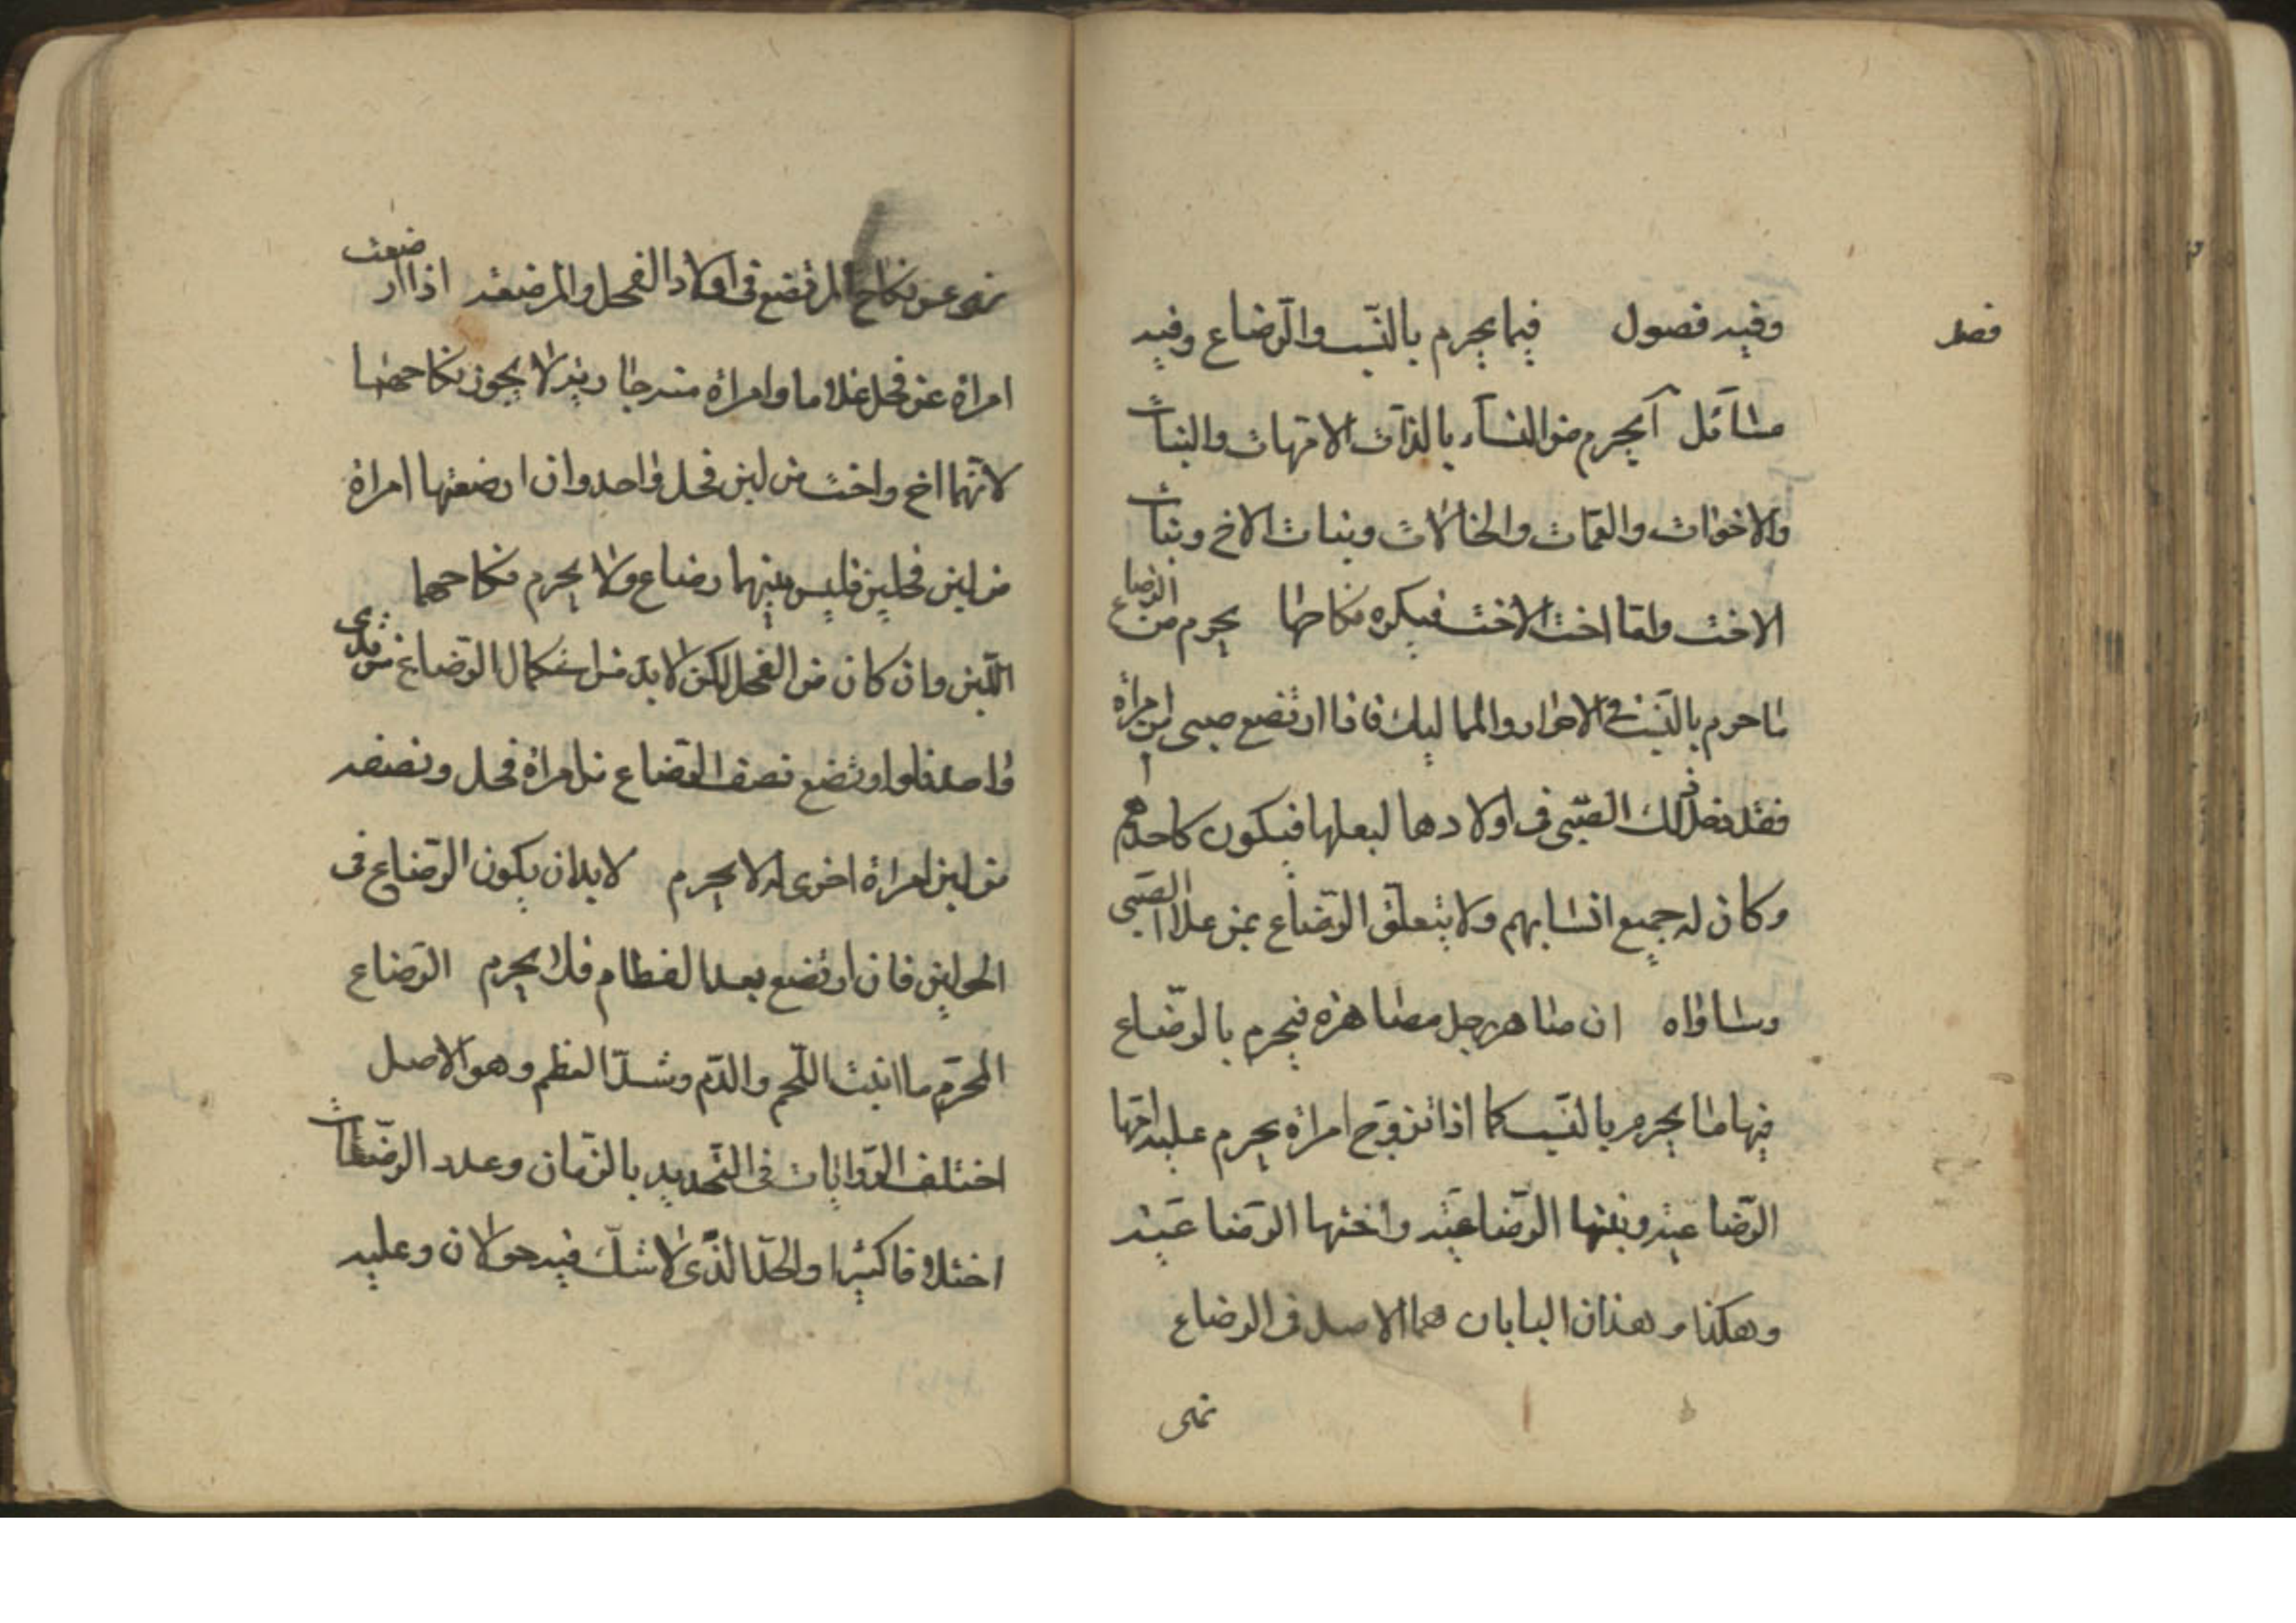 فصل
وفيه فصول فيما يحرم بالنّسب والرّضاع وفيه
مسآئل آ يحرم من النسآء بالذّات الامّهات والبنات
والاخوات والعمّات والخالات وبنات الاخ وبنات
الاخت وامّا اخت الاخت فيكره نكاحها يحرم من الرضاع
ما حرم بالنّسب في الاحرار والمماليك فاذا ارتضع صبى من امرأة
فقد دخل ذلك الصّبى فى اولادها لبعلها فيكون كاحدهم
وكان له جميع انسابهم ولا يتعلّق الرّضاع بمن علا الصّبى
وساواه ان صاهر رجل مصاهرة فيحرم بالرّضاع
فيها ما يحرم بالنّسب كما اذا تزوّج امرأة يحرم عليه امّها
الرّضاعيّة وبنتها الرّضاعيّة واختها الرّضاعيّة
وهكذا وهذان البابان هما الاصل فى الرضاع
نهى
نهى عن نكاح المرتضع فى اولاد الفحل والمرضعة اذا ارضعت
امراة عن فحل غلاما وامراة منه جارية لا يجوز نكاحهما
لانّهما اخ واخت من لبن فحل واحد وان ارضعتها امراة
من لبن فحلين فليس بينهما رضاع ولا يحرم نكاحهما
اللّبن وان كان من الفحل لكن لا بدّ من استكمال الرّضاع من ثدى
واحد فلو ارتضع نصف الرّضاع من امراة فحل ونصفه
من لبن امراة اخرى له لا يحرم لا بد ان يكون الرّضاع فى
الحولين فان ارتضع بعد الفطام فلا يحرم الرّضاع
المحرّم ما انبت اللّحم والدّم وشدّ العظم وهو الاصل
اختلف الرّوايات فى التّحديد بالزّمان وعدد الرّضعات
اختلافا كثيرا والحدّ الّذى لا شكّ فيه حولان وعليه